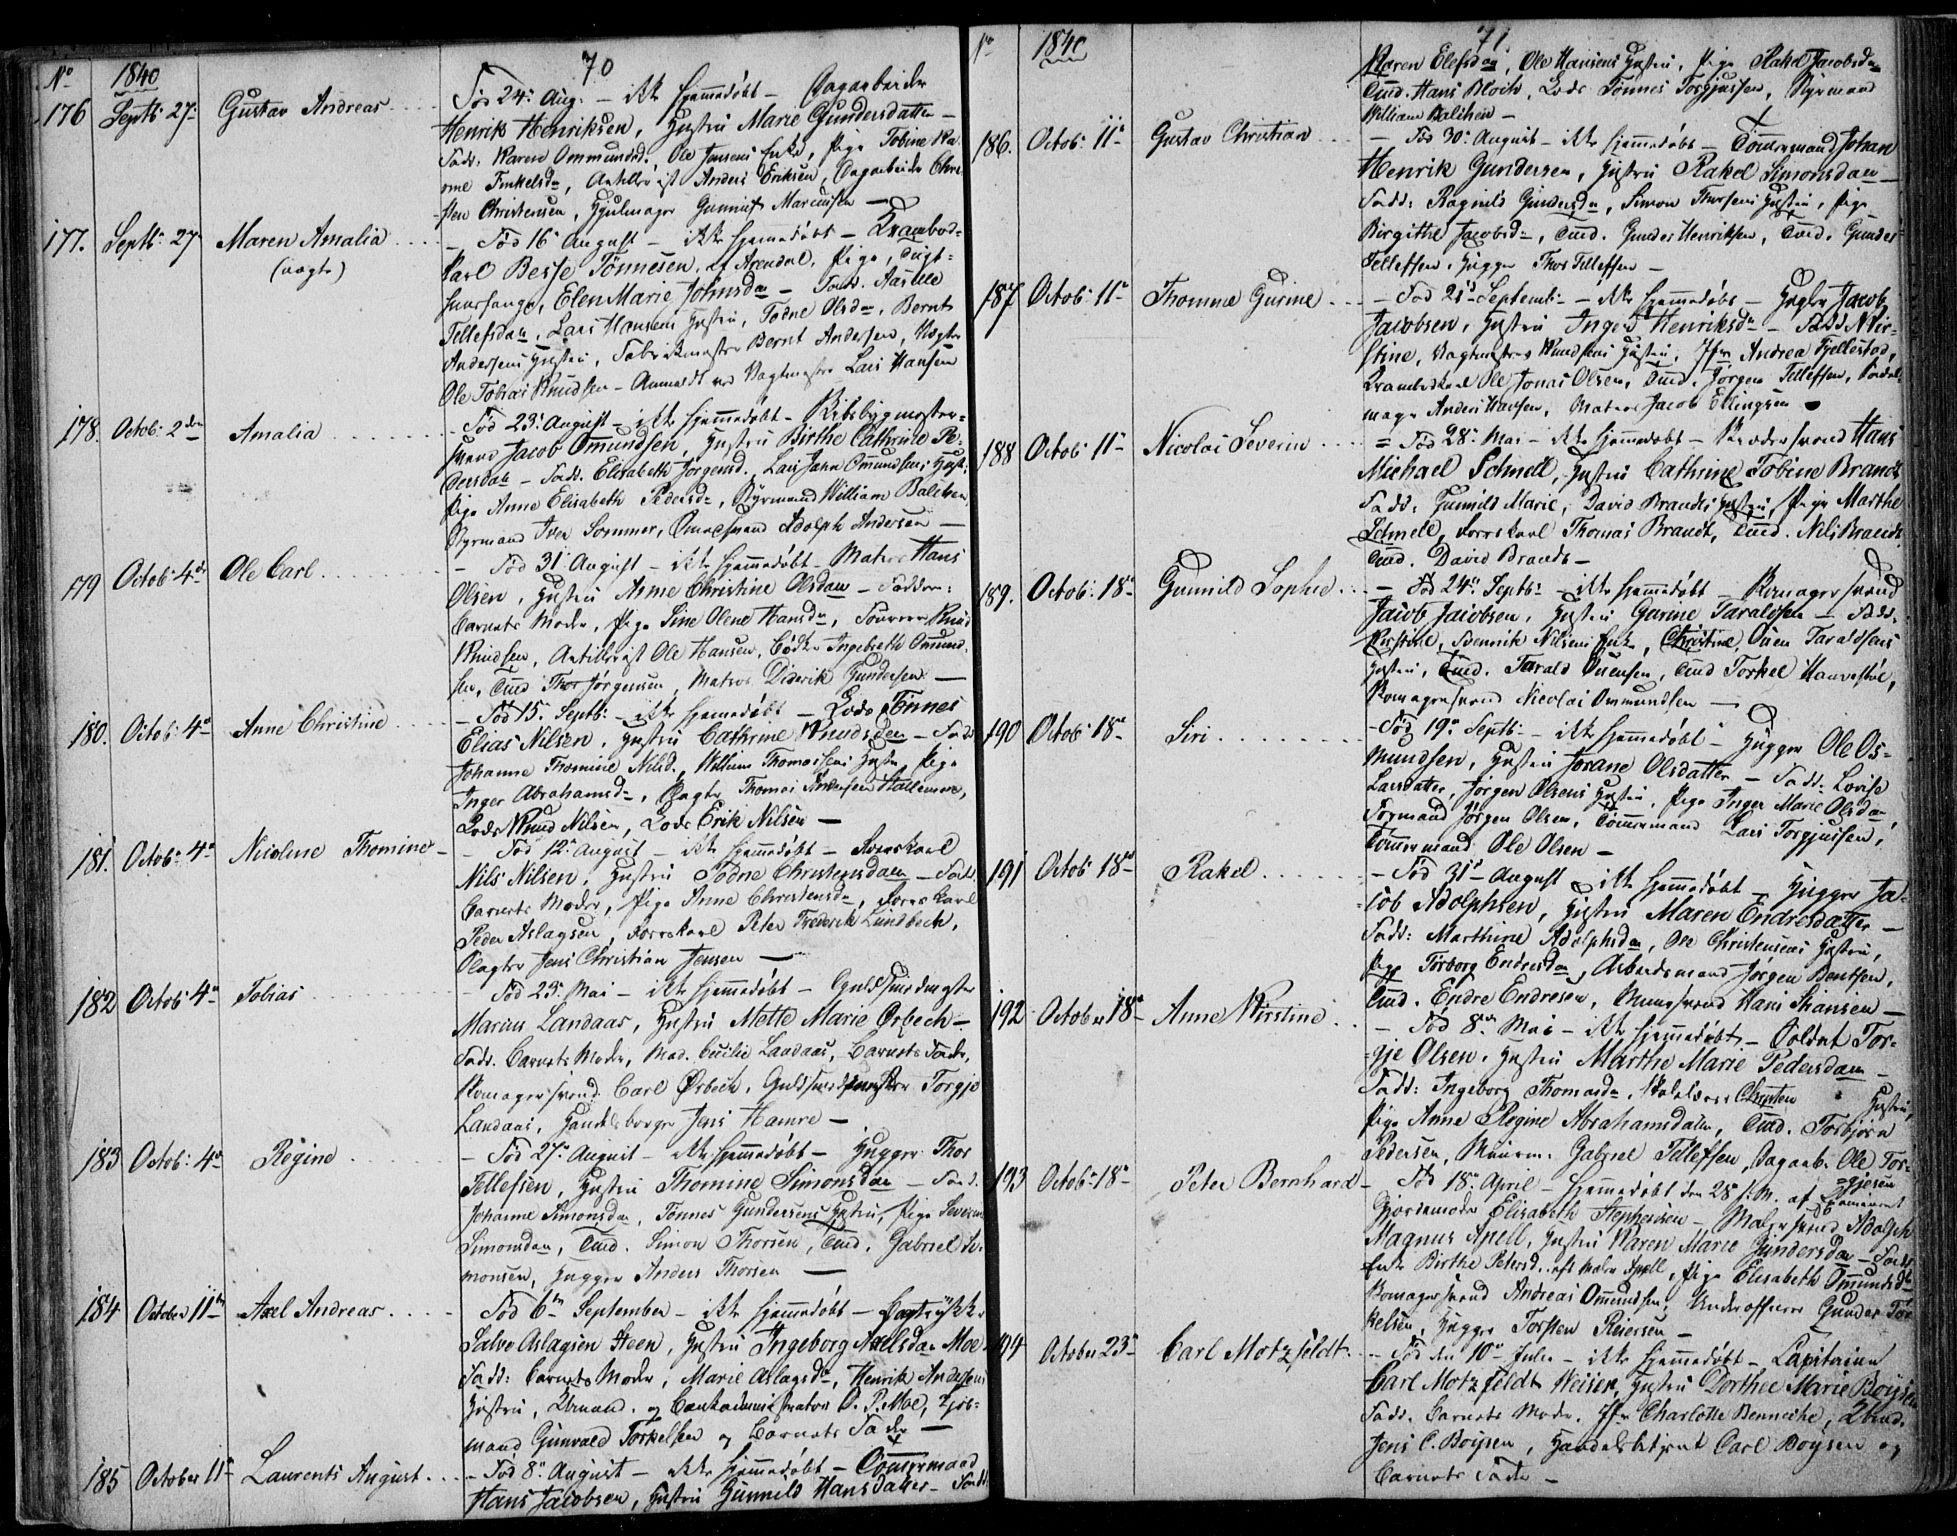 No 1840 70
176 Septb: 27. Gustav Andreas Fød 24. Aug. – ikke hjemmedøbt – Dagarbeider
Henrik Henriksen, Hustru Marie Gundersdatter –
Fadd: Karen Ommundsd. Ole Jensens Enke, Pige Tobine Ka
Artillerist Anders Eriksen, Dagarbeider Chri
sten Christensen, Hjulmager Gunnuf Marcussen –
177. Septb: 27 Maren Amalia – Fød 16 August – ikke hjemmedøbt –
(uægte) Karl Besse Tønnesen, af Arendal, Pige, Tugt-
huusfange, Elen Marie Johnsd. – Fadd.
Tellefsdan, Lars Hansens Hustru, Todne Olsd., Bernt
Andersens Hustru, Bernt Andersen, Vægter
Ole Tobias Knudsen – Anmeldt ved Vagtmester Lars Hansen
178. Octob: 2den Amalia – Fød 23. August – ikke hjemmedøbt – Skibsbygmester-
svend Jacob Omundsen, Hustru Birthe Cathrine Pe-
dersdatr – Fadd. Elisabeth Jørgensd. Lars Jahn Omundsens Hustr:
Pige Anne Elisabeth Pedersd., Styrmand William Balchen
Styrmand Iver Sommer, Adolph Andersen –
179 Octob: 4de Ole Carl – Fød 31 August – ikke hjemmedøbt – Matros Hans
Olsen, Hustru Anne Christine Olsdan – Faddere:
Barnets Moder, Pige Sine Olene Hansd., Knud
Knudsen, Artillerist Ole Hansen, Bødker Ingebreth Omund
sen, Tmd Thor Jørgensen, Matros Diderik Gundersen –
180. Octob: 4de Anne Christine – Fød 15. Septb: – ikke hjemmedøbt – Lods Tønnes
Elias Nilsen, Hustru Cathrine Knudsdan – Fadd
Johanne Thomine Nilsd., Willum Thomassens Hustru, Pige
Inger Abrahamsd., Slagter Thomas Andersen
Lods Knud Nilsen, Lods Erik Nilsen –
181. Octob: 4de Nicoline Thomine – Fød 12. August – ikke hjemmedøbt –
Nils Nilsen, Hustru Todne Christensdaen – Fadd.
Barnets Moder, Pige Anne Christensd.,
Peder Aslagsen, Peter Frederik Lundbech,
Slagter Jens Christian Jensen –
182 Octob 4de Tobias – Fød 23. Mai – ikke hjemmedøbt – Guldsmedmester
Marius Landaas, Hustru Mette Marie Ørbech –
Fadd. Barnets Moder, Mad. Cecilie Landaas, Barnets Fader,
Skomagersvend Carl Ørbech, Guldsmedmester Torgje
Landaas, Handelsborger Jens Hamre –
183 Octob: 4de Regine – Fød 27. August – ikke hjemmedøbt – Hugger Thor
Tellefsen, Hustru Thomine Simonsdan – Fadd.
Johanne Simonsdan, Tønnes Gundersens Hustru, Pige Severine
Simonsdan, Tmd. Simon Thorsen, Tmd. Gabriel Si-
monsen, Hugger Anders Thorsen –
184 October 11te Axel Andreas – Fød 6te September – ikke hjemmedøbt – Bogtrykker
Salve Aslagsen Steen, Hustru Ingeborg Nielsdan Moe
Fadd: Barnets Moder, Marie Aslagsd., Henrik Andersens
Hustru, og Bankadministrator O. P. Moe,
mand Gunvald Torkelsen og Barnets Fader –
185 October 11te Laurents August – Fød 8. August – ikke hjemmedøbt – Tømmermand
Hans Jacobsen, Hustru Gunnild Hansdatter – Fadd.
No 1840 71
Karen Elefsdan, Ole Hansens Hustru, Pige Rakel Jacobsdan
Tmd. Hans Bloch, Lods Tønnes Torgjussen, Styrmand
William Balchen –
186. Octob: 11te Gustav Christian – Fød 30. August – ikke hjemmedøbt – Tømmermand Johan
Henrik Gundersen, Hustru Rakel Simonsdan –
Fadd: Ragnild Gundersd., Simon Thorsens Hustru, Pige
Birgithe Jacobsd., Tmd. Gunder Henriksen, Tmd. Gunder
Tellefsen, Hugger Thor Tellefsen –
187 Octob: 11te Thomine Gurine – Fød 21. Septemb: – ikke hjemmedøbt – Hugger Jacob
Jacobsen, Hustru Inger Henriksd. – Fadd Kir-
stine, Vagtmester Knudsens Hustru, Jfr Andrea Fjellestad,
Ole Jonas Olsen, Tmd. Jørgen Tellefsen,
mager Anders Hansen, Matros Jacob Ellingsen –
188 Octob: 11te Nicolai Severin – Fød 28. Mai – ikke hjemmedøbt – Skrædersvend Hans
Michael Schnell, Hustru Cathrine Tobine Brandt
Fadd. Gunnild Marie, David Brandts Hustru, Pige Marthe
Schnell, Thomas Brandt, Tmd. Nils Brandt
Tmd. David Brandt –
189. Octob: 18de Gunnild Sophie – Fød 24. Septb: – ikke hjemmedøbt – Skomagersvend
Jacob Jacobsen, Hustru Gurine Taraldsen – Fadd.
Kirstine, Nilsens Enke, Christine, Ouen Taraldsens
Hustru, Tmd. Tarald Ouensen, Tmd Torkel
Skomagersvend Nicolai Ommundsen –
190 Octob 18de Siri – Fød 19. Septb: – ikke hjemmedøbt – Hugger Ole Os-
mundsen, Hustru Jorane Olsdatter – Fadd: Lovise
Larsdatter, Jørgen Olsens Hustru, Pige Inger Marie Olsdan,
Formand Jørgen Olsen, Tømmermand Lars Torgjussen,
Tømmermand Ole Olsen –
191 Octob 18de Rakel – Fød 31. August – ikke hjemmedøbt – Hugger Ja-
cob Adolphsen, Hustru Maren Endresdatter –
Fadd: Marthine Adolphsdan, Ole Christensens Hustru,
Pige Torborg Endresdan, Arbeidsmand Jørgen Bentsen,
Tmd. Endre Endresen, Ungsvend Hans Hansen –
192 October 18de Anne Kirstine – Fød 8de Mai – ikke hjemmedøbt – Soldat Tor-
gje Olsen, Hustru Marthe Marie Pedersdan –
Fadd: Ingeborg Thomasd., Hustru,
Pige Anne Regine Abrahamsdatr, Tmd. Torbjørn
Pedersen, Gabriel Tellefsen, Dagarb. Ole Tor-
gjesen
193 Octob: 18de Peter Bernhard – Fød 18. April – hjemmedøbt den 28. s. M. af Examineret
Gjordemoder Elisabeth Stephensen – Malersvend Adolph
Magnus Apell, Hustru Karen Marie Gundersdan – Fadd.
Enke Birthe Petersd. Apell, Pige Elisabeth Omundsd.
Skomagersvend Andreas Omundsen, Underofficeer Gunder Tor
kelsen, Hugger Torsten Reiersen –
194 October 23de Carl Motzfeldt – Fød den 10de Julii – ikke hjemmedøbt – Capitaine
Carl Motzfeldt Weiser, Hustru Dorthee Marie Boysen
Fadd. Barnets Moder. Jfr Charlotte Benneche,
Jens C. Boysen, Handelsbetjent Carl Boysen og
Barnets Fader –